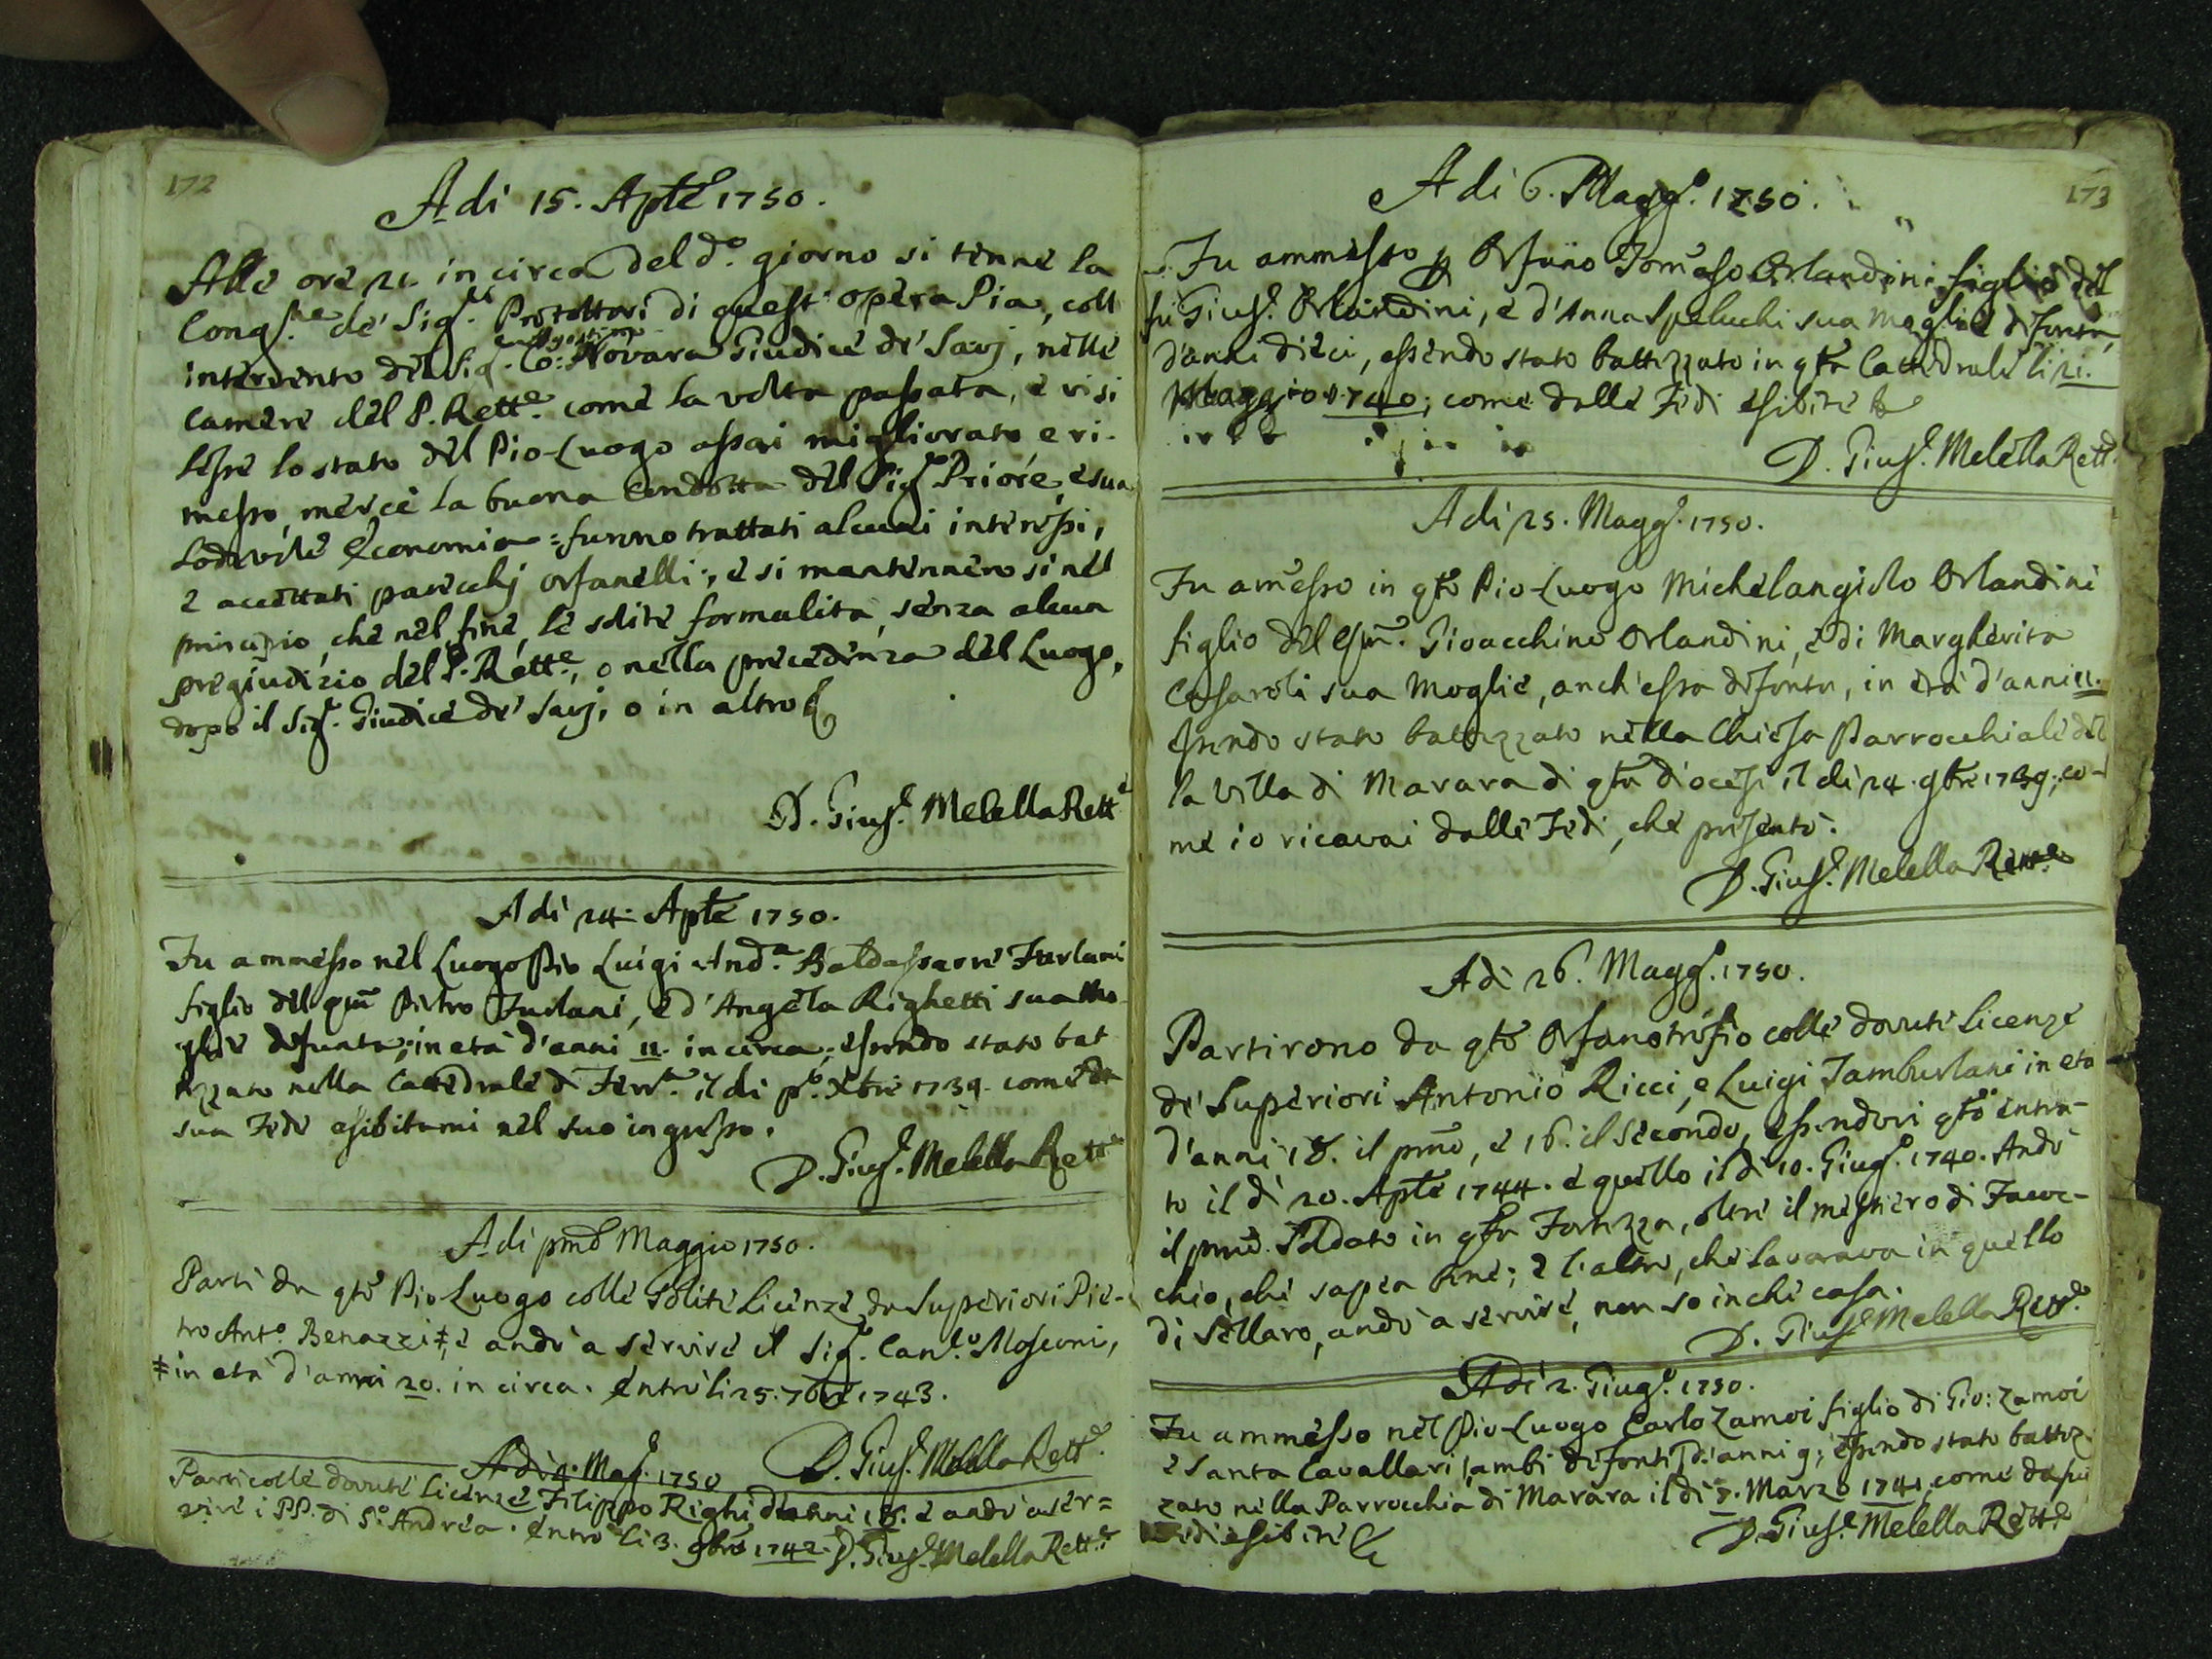 172
A di 15. Aple 1750.
Alle ore 21. in circa del do. giorno si tenne la
Congne. de' Sigri. Protettori di quest'opera Pia, coll
intervento del Sig. Co: Novara Giudice de' Savj, nelle
camere del P. Rette. come la volta passata, e vi si
lesse lo stato del Pio-Luogo assai migliorato e ri-
messo, mercè la buona condotta del Sigr Priore, e sua
lodevole economia = furono trattati alcuni interessi,
e accettati parecchj orfanelli; e si mantennero sì nel
principio, che nel fine, le solite formalità, senza alcun
pregiudizio del P. Rette., o nella precedenza del Luogo,
dopo il Sigr. Giudice de' Savj, o in altro &
D. Giuse. Melella Rette
A di 24. Aple 1750.
Fu ammesso nel Luogo Pio Luigi Anda. Baldassarre Furlani
figlio del qm Pietro Furlani, e d'Angela Righetti sua Mo-
glie defunta; in età d'anni 11. in circa; essendo stato bat
tezzato nella Cattedrale di Ferra. il di po. Xbre 1739. come da
sua Fede esibitami nel suo ingresso.
D. Giuse. Melella Rette
A di pmo Maggio 1750.
Partì da qto Pio Luogo colle solite Licenze da Superiori Pie-
tro Anto. Benazzi ǂ, e andò a servire il Sigr. Cano. Mosconi,
ǂ in età d'anni 20. in circa. Entrò li 25. 7bre 1743.
D. Giuse. Melella Rette.
A di 4. Mago. 1750
Partì colle dovute licenze Filippo Righi d'anni 18. e andò a ser=
vire i PP. di So. Andrea. Entrò li 3. 9bre 1742. D. Giuse. Melella Rette.
173
A di 6. Maggo. 1750.
Fu ammesso p Orfano Tomeso Orlandini figlio del
fu Giuse. Orlandini, e d'Anna Speluchi sua moglie defonta,
d'anni dieci, essendo stato battezzato in qta Cattedrale li 21.
Maggio 1740; come dalle Fedi esibite &
D. Giuse. Melella Rette.
A di 25. Maggo. 1750.
Fu amesso in qto Pio-Luogo Michelangiolo Orlandini
figlio del qm. Gioacchino Orlandini, e di Margherita
Casaroli sua Moglie, anch'essa defonta, in età d'anni 11.
essendo stato battezzato nella Chiesa Parrocchiale del
la Villa di Marara di qta diocesi il di 24. 9bre 1739; co-
me io ricavai dalle Fedi, che presentò.
D. Giuse. Melella Rette.
A di 26. Maggo. 1750.
Partirono da qto Orfanotrofio colle dovute licenze
de' Superiori Antonio Ricci, e Luigi Tamburlani in età
d'anni 18. il pmo, e 16. il secondo, essendovi qto entra-
to il dì 20. Aple 1744. e quello il dì 10. Giugo. 1740. Andò
il pmo. Soldato in qta Fortezza, oltre il mestiero di Faloc-
chio, che sapea bene; e l'altro, che lavorava in quello
di Sellaro, andò a servire, non so in che casa.
D. Giuse Melella Rette.
A di 2. Giugo. 1750.
Fu ammesso nel Pio-Luogo Carlo Zamoi figlio di Gio: Zamoi
e Santa Cavallari, ambi defonti, d'anni 9; essendo stato battez-
zato nella Parrocchia di Marara il di 7. Marzo 1741, come da sue
Fedi esibite &
D. Giuse. Melella Rette